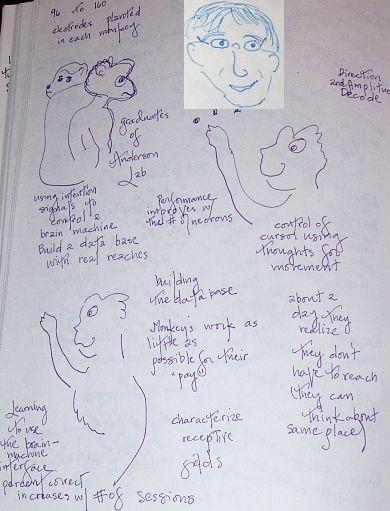 96 to 160
electrodes planted
in each monkey
Direction
and Amplitude
Decode
graduates
of
Anderson
Lab
using intention
signals to
control a
brain machine
Build a data base
with real reaches
Performance
improves w/
the # of neurons
control of
cursor using
thoughts for
movement
building
the data base
Monkey's work as
little as
possible for their
"pay"
about a
day they
realize
they don't
have to reach
(they can
think about
same place)
Learning
to use
the brain-
machine
interface
percent correct
increases w/ # of sessions
characterize
receptive
fields